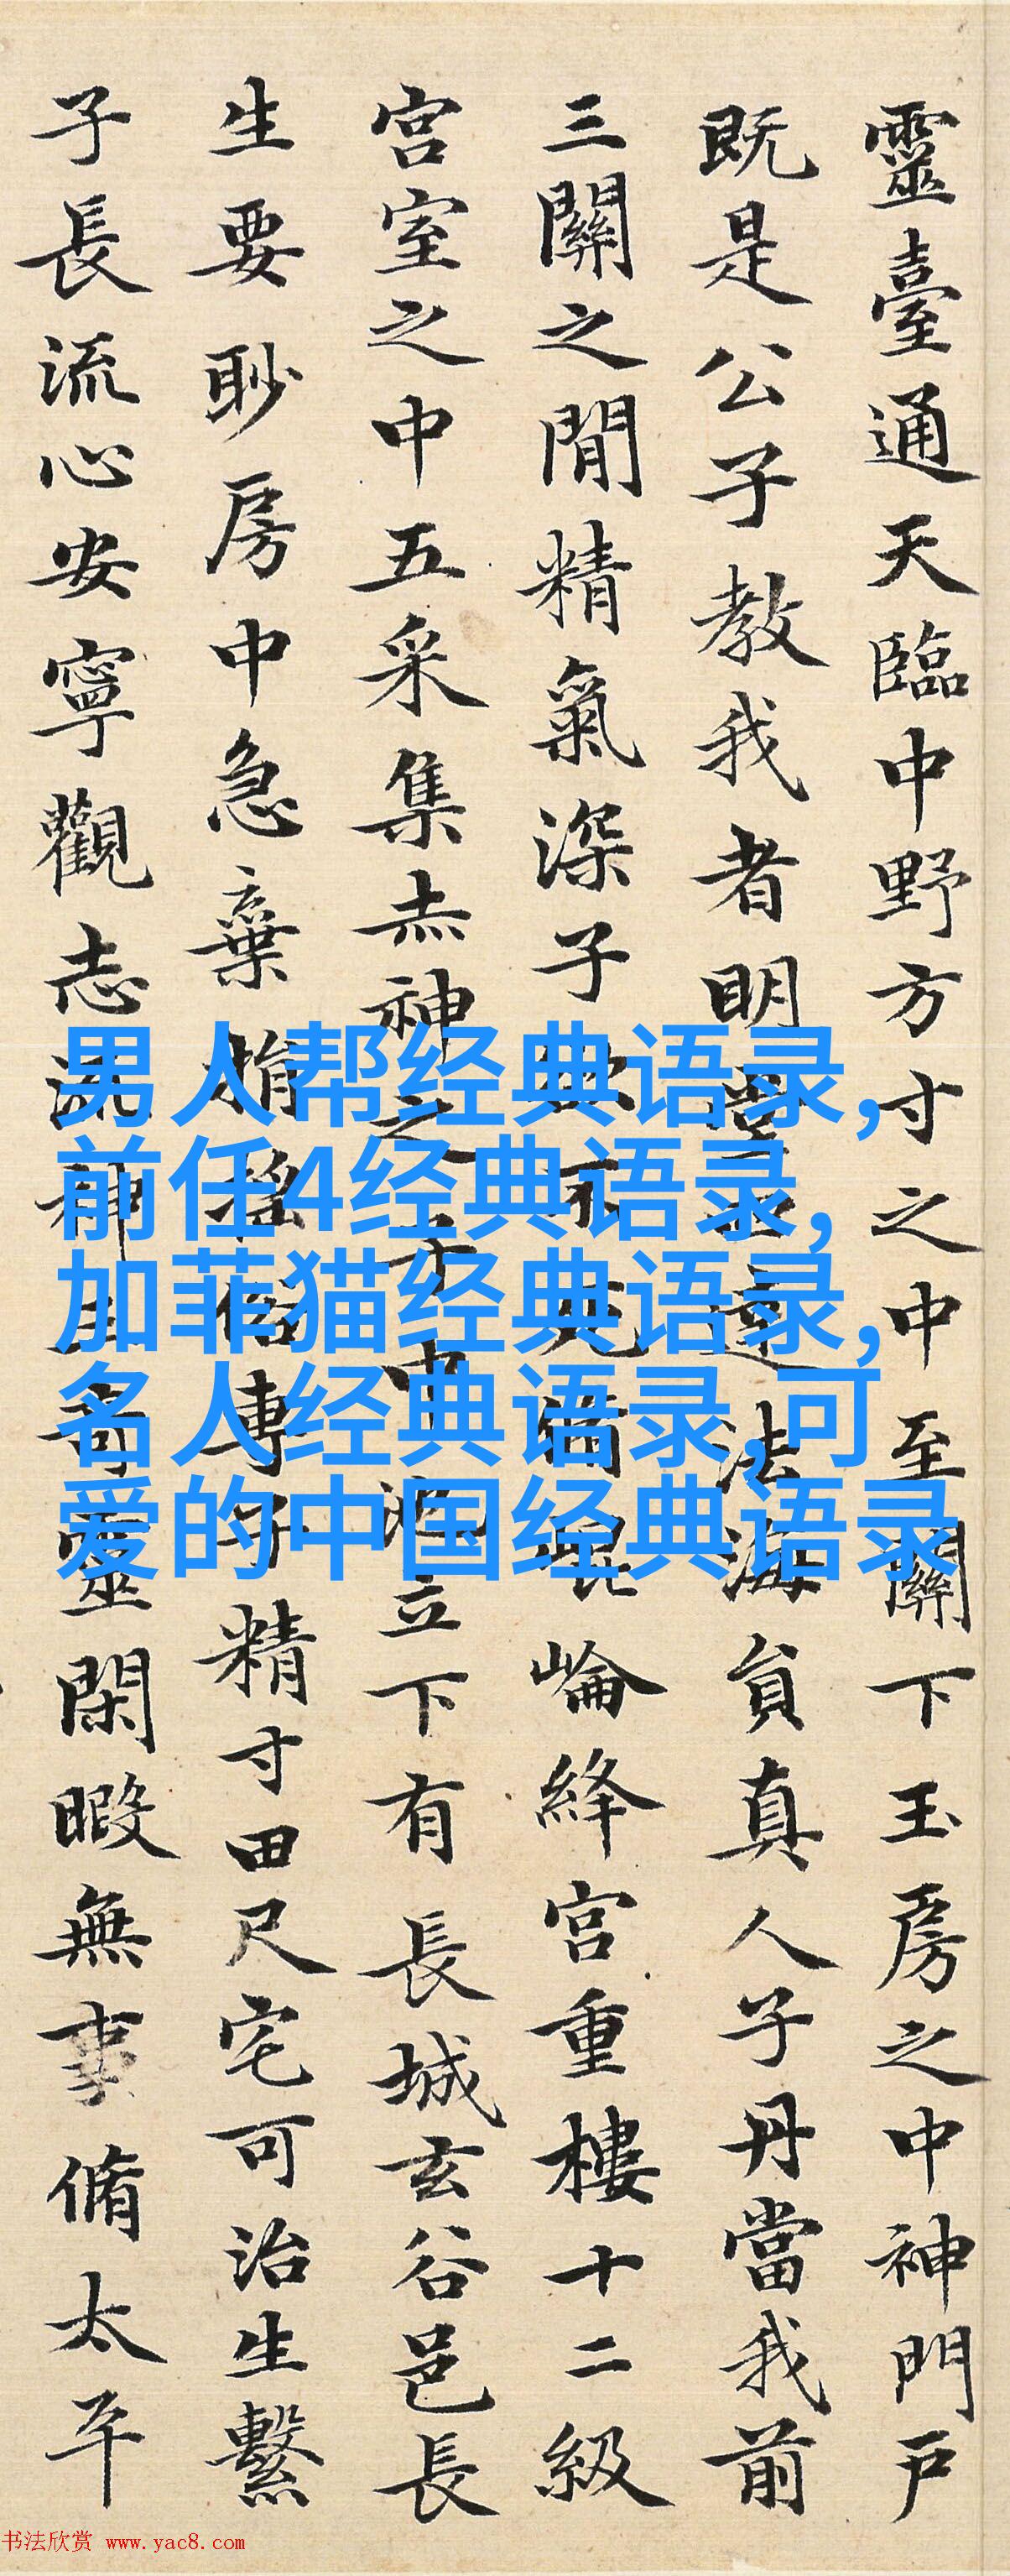 靈臺通天臨中野方寸之中至關下玉房之中神門戶
既是公子教我者明堂四達法海員真人子丹當我前
三關之閒精氣深子欲不死脩崑崙絳宮重樓十二級
宮室之中五采集赤神之子中池立下有長城玄谷邑長
生要眇房中急棄捐搖俗專子精寸田尺宅可治生繫
子長流心安寧觀志流神三奇靈閑暇無事脩太平
男人帮经典语录,
前任4经典语录,
加菲猫经典语录,
名人经典语录,可
爱的中国经典语录
书法欣赏 www.yac8.com